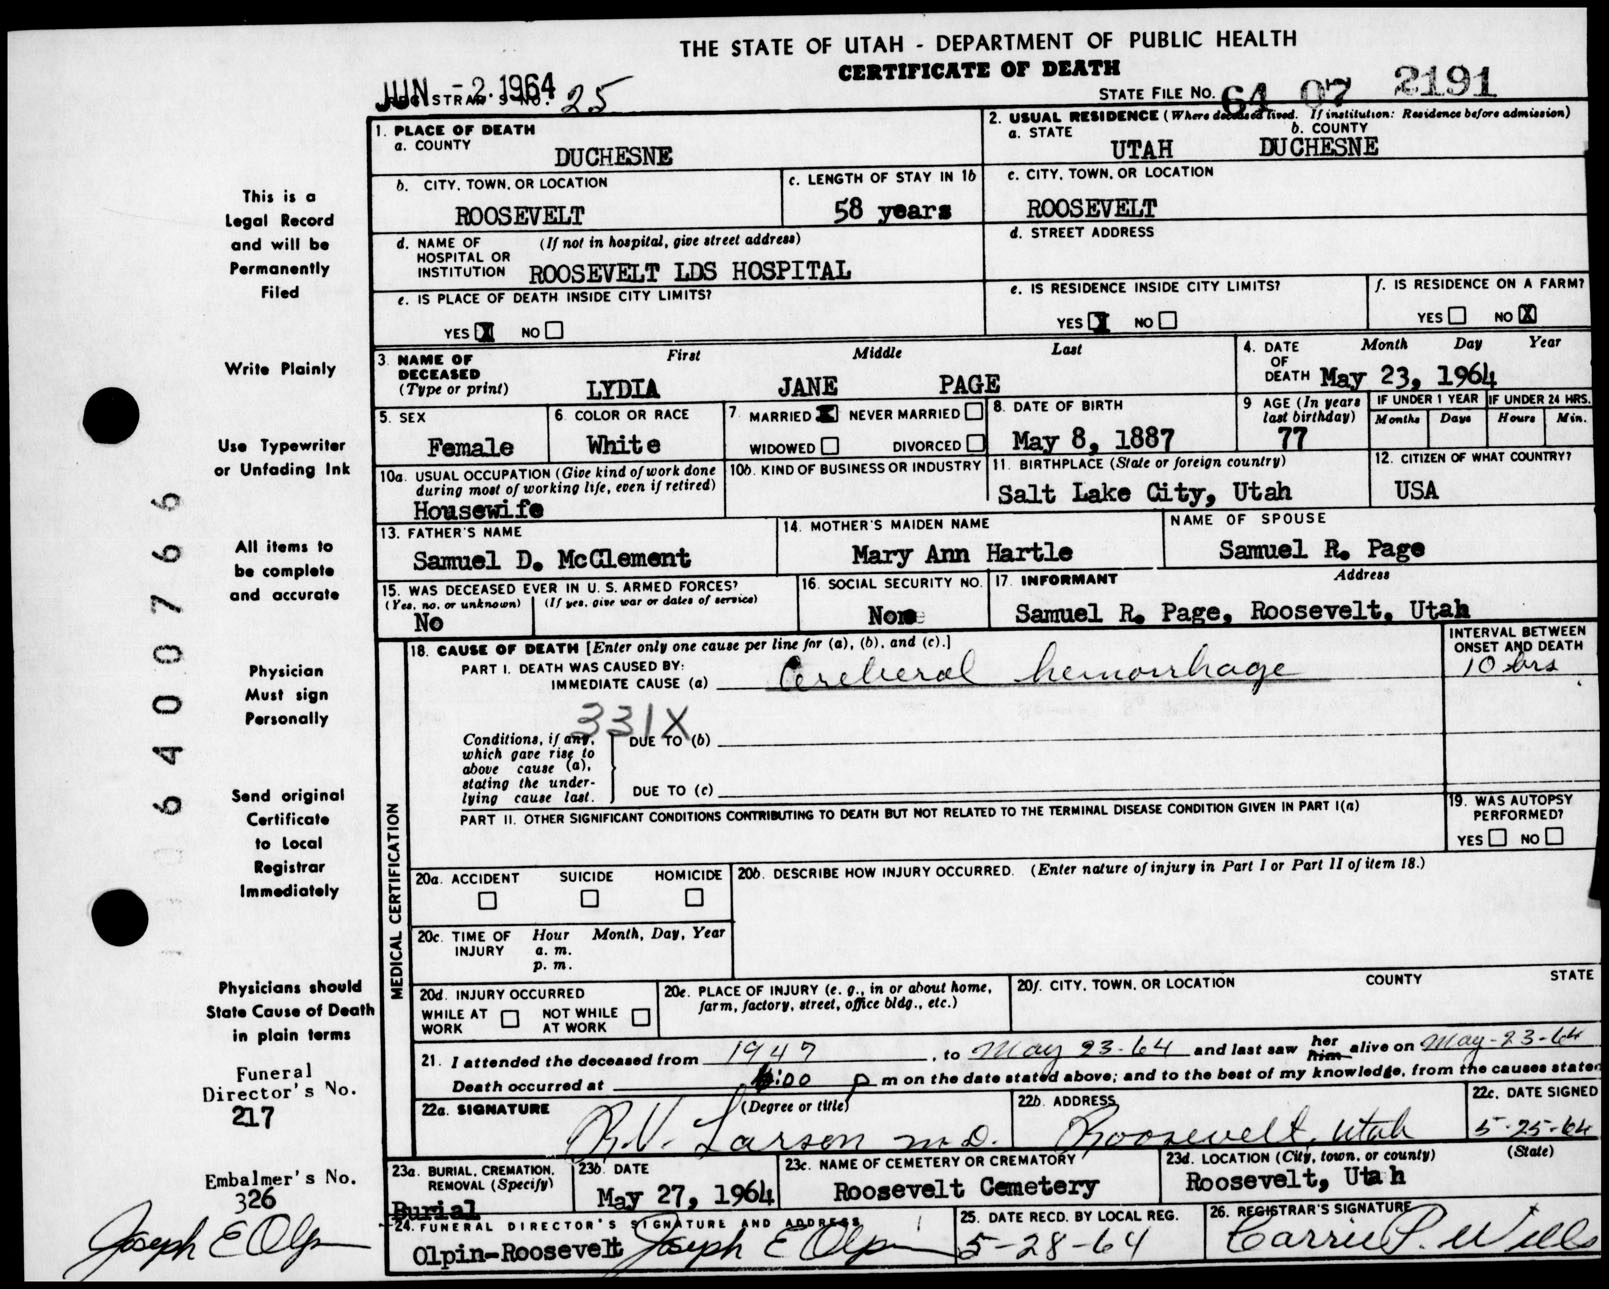 THE STATE OF UTAH - DEPARTMENT OF PUBLIC HEALTH
CERTIFICATE OF DEATH
JUN -2. 1964
REGISTRAR'S NO. 25
STATE FILE NO. 64 07 2191
1. PLACE OF DEATH
a. COUNTY
DUCHESNE
2. USUAL RESIDENCE (Where deceased lived. If institution: Residence before admission)
a. STATE b. COUNTY
UTAH DUCHESNE
b. CITY, TOWN, OR LOCATION
ROOSEVELT
c. LENGTH OF STAY IN 1b
58 years
c. CITY, TOWN, OR LOCATION
ROOSEVELT
d. NAME OF HOSPITAL OR INSTITUTION (If not in hospital, give street address)
ROOSEVELT LDS HOSPITAL
d. STREET ADDRESS
e. IS PLACE OF DEATH INSIDE CITY LIMITS?
YES X NO
e. IS RESIDENCE INSIDE CITY LIMITS?
YES X NO
f. IS RESIDENCE ON A FARM?
YES NO X
3. NAME OF DECEASED (Type or print)
First Middle Last
LYDIA JANE PAGE
4. DATE OF DEATH Month Day Year
May 23, 1964
5. SEX
Female
6. COLOR OR RACE
White
7. MARRIED X NEVER MARRIED
WIDOWED DIVORCED
8. DATE OF BIRTH
May 8, 1887
9 AGE (In years last birthday)
77
IF UNDER 1 YEAR
Months Days
IF UNDER 24 HRS.
Hours Min.
10a. USUAL OCCUPATION (Give kind of work done during most of working life, even if retired)
Housewife
10b. KIND OF BUSINESS OR INDUSTRY
11. BIRTHPLACE (State or foreign country)
Salt Lake City, Utah
12. CITIZEN OF WHAT COUNTRY?
USA
13. FATHER'S NAME
Samuel D. McClement
14. MOTHER'S MAIDEN NAME
Mary Ann Hartle
NAME OF SPOUSE
Samuel R. Page
15. WAS DECEASED EVER IN U. S. ARMED FORCES?
(Yes, no, or unknown) (If yes, give war or dates of service)
No
16. SOCIAL SECURITY NO.
None
17. INFORMANT Address
Samuel R. Page, Roosevelt, Utah
MEDICAL CERTIFICATION
18. CAUSE OF DEATH [Enter only one cause per line for (a), (b), and (c).]
INTERVAL BETWEEN ONSET AND DEATH
PART I. DEATH WAS CAUSED BY:
IMMEDIATE CAUSE (a) Cerebral hemorrhage 10 hrs
331X
Conditions, if any, which gave rise to above cause (a), stating the underlying cause last.
DUE TO (b)
DUE TO (c)
PART II. OTHER SIGNIFICANT CONDITIONS CONTRIBUTING TO DEATH BUT NOT RELATED TO THE TERMINAL DISEASE CONDITION GIVEN IN PART I(a)
19. WAS AUTOPSY PERFORMED?
YES NO
20a. ACCIDENT SUICIDE HOMICIDE
20b. DESCRIBE HOW INJURY OCCURRED. (Enter nature of injury in Part I or Part II of item 18.)
20c. TIME OF INJURY Hour Month, Day, Year
a. m.
p. m.
20d. INJURY OCCURRED
WHILE AT WORK NOT WHILE AT WORK
20e. PLACE OF INJURY (e. g., in or about home, farm, factory, street, office bldg., etc.)
20f. CITY, TOWN, OR LOCATION COUNTY STATE
21. I attended the deceased from 1947, to May 23-64 and last saw her him alive on May-23-64
Death occurred at 6:00 p m on the date stated above; and to the best of my knowledge, from the causes stated
22a. SIGNATURE (Degree or title)
R.V. Larson m.D.
22b. ADDRESS
Roosevelt, Utah
22c. DATE SIGNED
5-25-64
23a. BURIAL, CREMATION, REMOVAL (Specify)
Burial
23b. DATE
May 27, 1964
23c. NAME OF CEMETERY OR CREMATORY
Roosevelt Cemetery
23d. LOCATION (City, town, or county) (State)
Roosevelt, Utah
24. FUNERAL DIRECTOR'S SIGNATURE AND ADDRESS
Olpin-Roosevelt Joseph E Olpin
25. DATE RECD. BY LOCAL REG.
5-28-64
26. REGISTRAR'S SIGNATURE
Carrie P. Wills
This is a
Legal Record
and will be
Permanently
Filed
Write Plainly
Use Typewriter
or Unfading Ink
All items to
be complete
and accurate
Physician
Must sign
Personally
Send original
Certificate
to Local
Registrar
Immediately
Physicians should
State Cause of Death
in plain terms
Funeral
Director's No.
217
Embalmer's No.
326
Joseph E Olpin
6400766